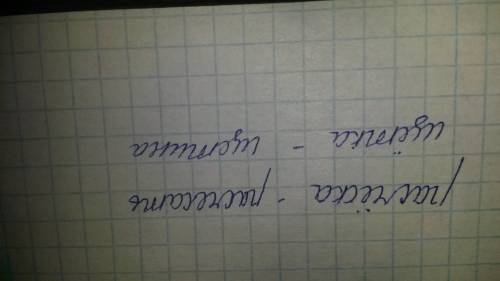 расчёска - расчесать
щётка - щетина